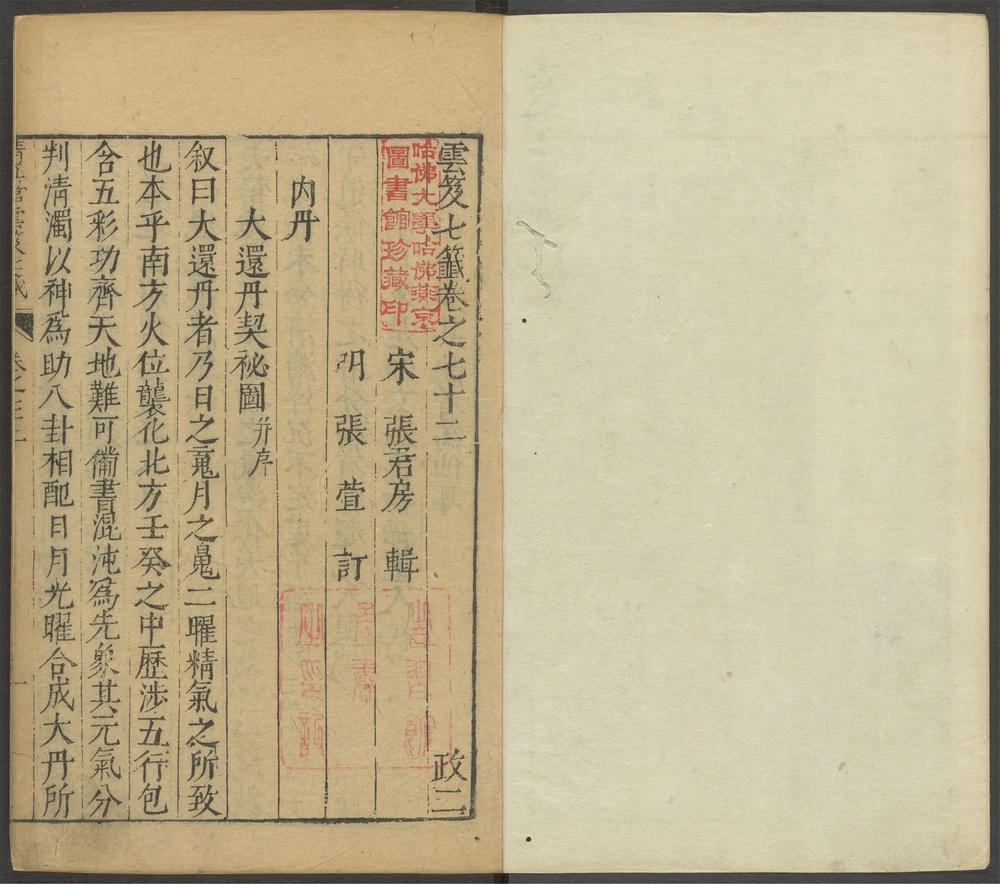 雲笈七籤卷之七十二 政二
哈佛大學哈佛燕京
圖書館珍藏印
宋 張君房 輯
明 張萱 訂
内丹
大還丹契祕圖 并序
叙曰大還丹者乃日之䰟月之魄二曜精氣之所致
也本乎南方火位襲化北方壬癸之中歷涉五行包
含五彩功齊天地難可備書混沌爲先象其元氣分
判清濁以神爲助八卦相配日月光曜合成大丹所
清真館雲笈七籤 卷之七十二 一